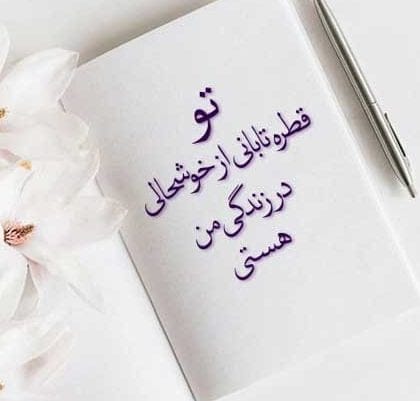 تو
قطره تابانی از خوشحالی
در زندگی من
هستی